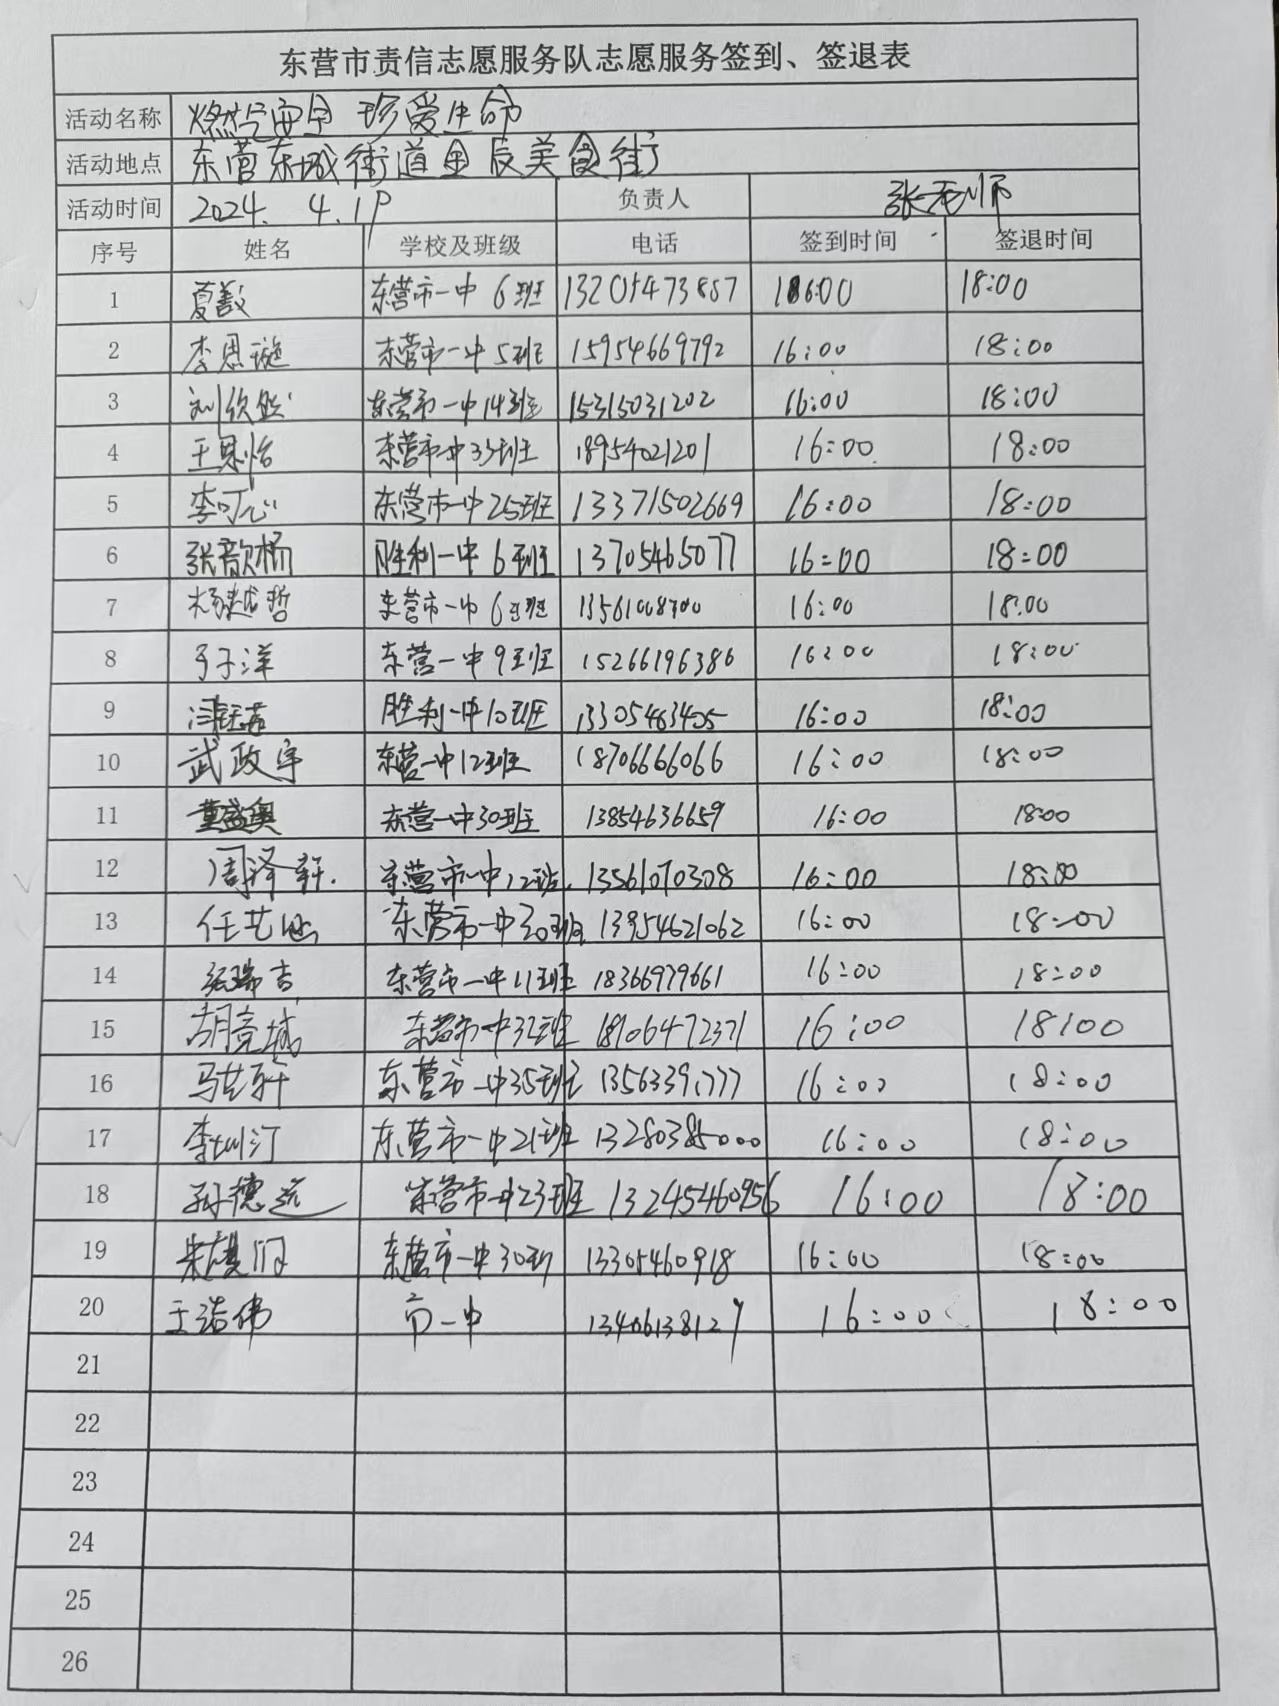 东营市责信志愿服务队志愿服务签到、签退表
活动名称 燃气安全 珍爱生命
活动地点 东营东城街道金辰美食街
活动时间 2024. 4. 负责人 张老师
序号 姓名 学校及班级 电话 签到时间 签退时间
1 夏 东营市一中 6班 18:00
2 李思璇 东营市一中 5班 15954669792 16:00 18:00
3 刘欣然 东营市一中14班 15315031202 16:00 18:00
4 王思怡 东营市一中 班 18954021201 16:00 18:00
5 李可心 东营市一中25班 13371502669 16:00 18:00
6 张歆杨 胜利一中 6班 13705465077 16:00 18:00
7 杨 哲 东营市一中 6班 16:00 18:00
8 于子洋 东营一中 9班 15266196386 16:00 18:00
9 胜利一中10班 13305463405 16:00 18:00
10 武政宇 东营一中12班 18706666066 16:00 18:00
11 董盛奥 东营一中30班 13854636659 16:00 18:00
12 周泽轩 东营市一中12班 13561070308 16:00 18:00
13 任艺 东营市一中30班 13954621062 16:00 18:00
14 张瑞吉 东营市一中11班 18366979661 16:00 18:00
15 胡竞城 东营市一中32班 18106472371 16:00 18:00
16 马艺轩 东营市一中35班 16:00 18:00
17 李 汀 东营市一中21班 13280385000 16:00 18:00
18 孙德远 东营市一中23班 13245460956 16:00 18:00
19 东营市一中30班 13305460918 16:00 18:00
20 王浩伟 市一中 13406138127 16:00 18:00
21
22
23
24
25
26